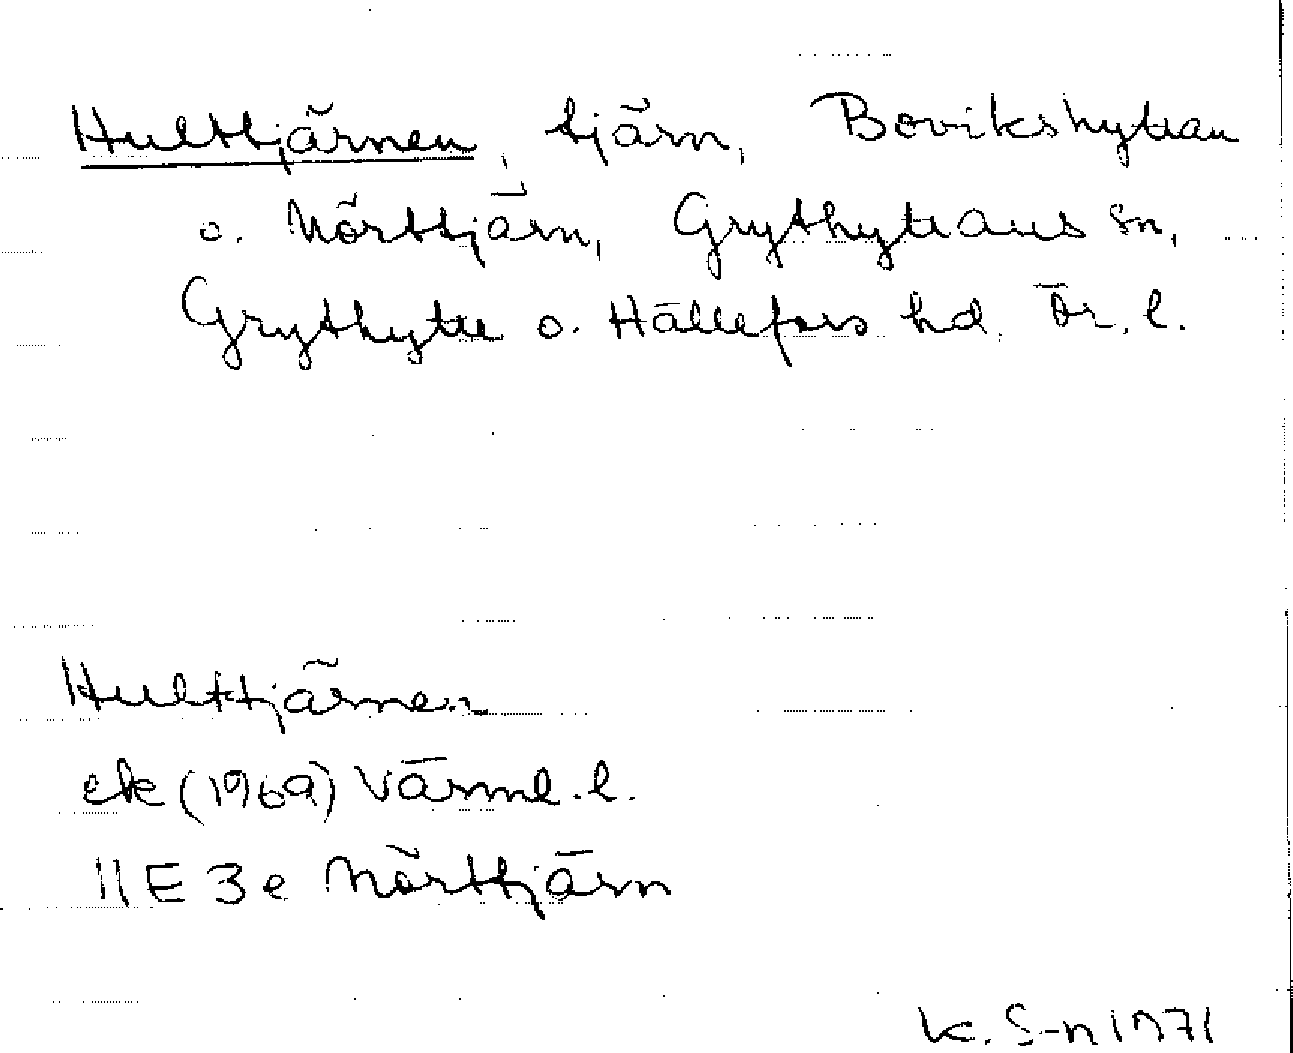 Hulttjärnen, tjärn, Bovikshyttan
o. Mörttjärn, Grythyttans sn,
Grythytte o. Hällefors hd. Ör. l.
Hulttjärnen
ek (1969) Värml. l.
11E 3e Mörttjärn
K. S-n 1971